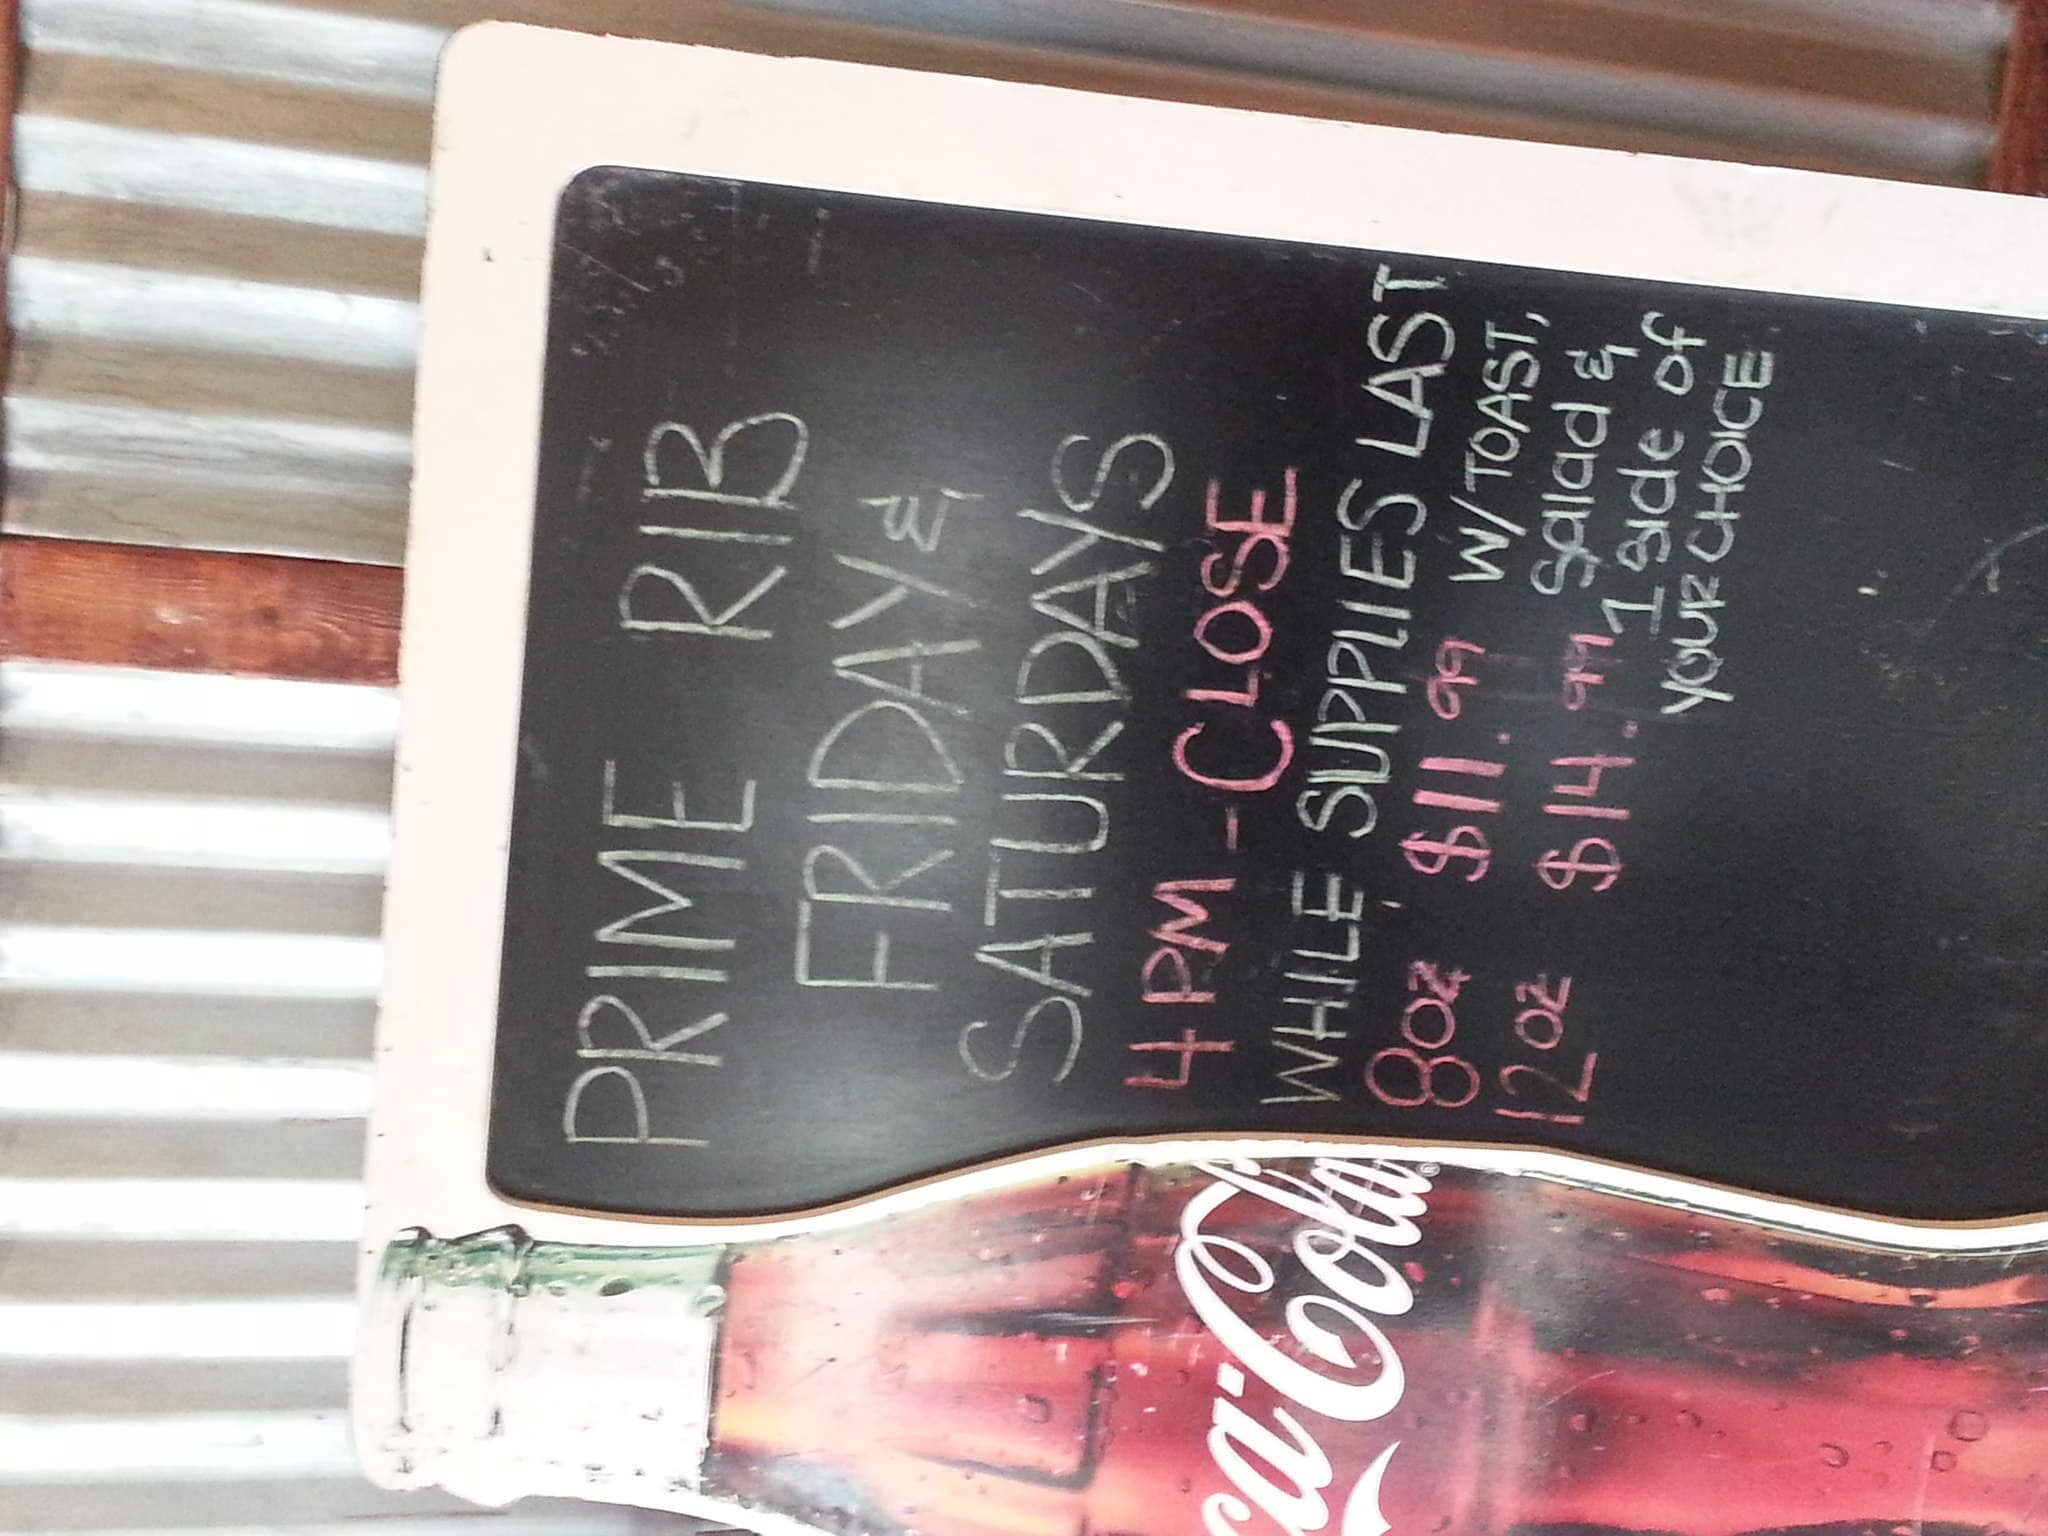 PRIME RIB
FRIDAY &
SATURDAYS
4 PM - CLOSE
WHILE SUPPLIES LAST
8oz $11.99 W/TOAST,
12oz $14.99 Salad &
1 Side of
YOUR CHOICE
ca-Cola®